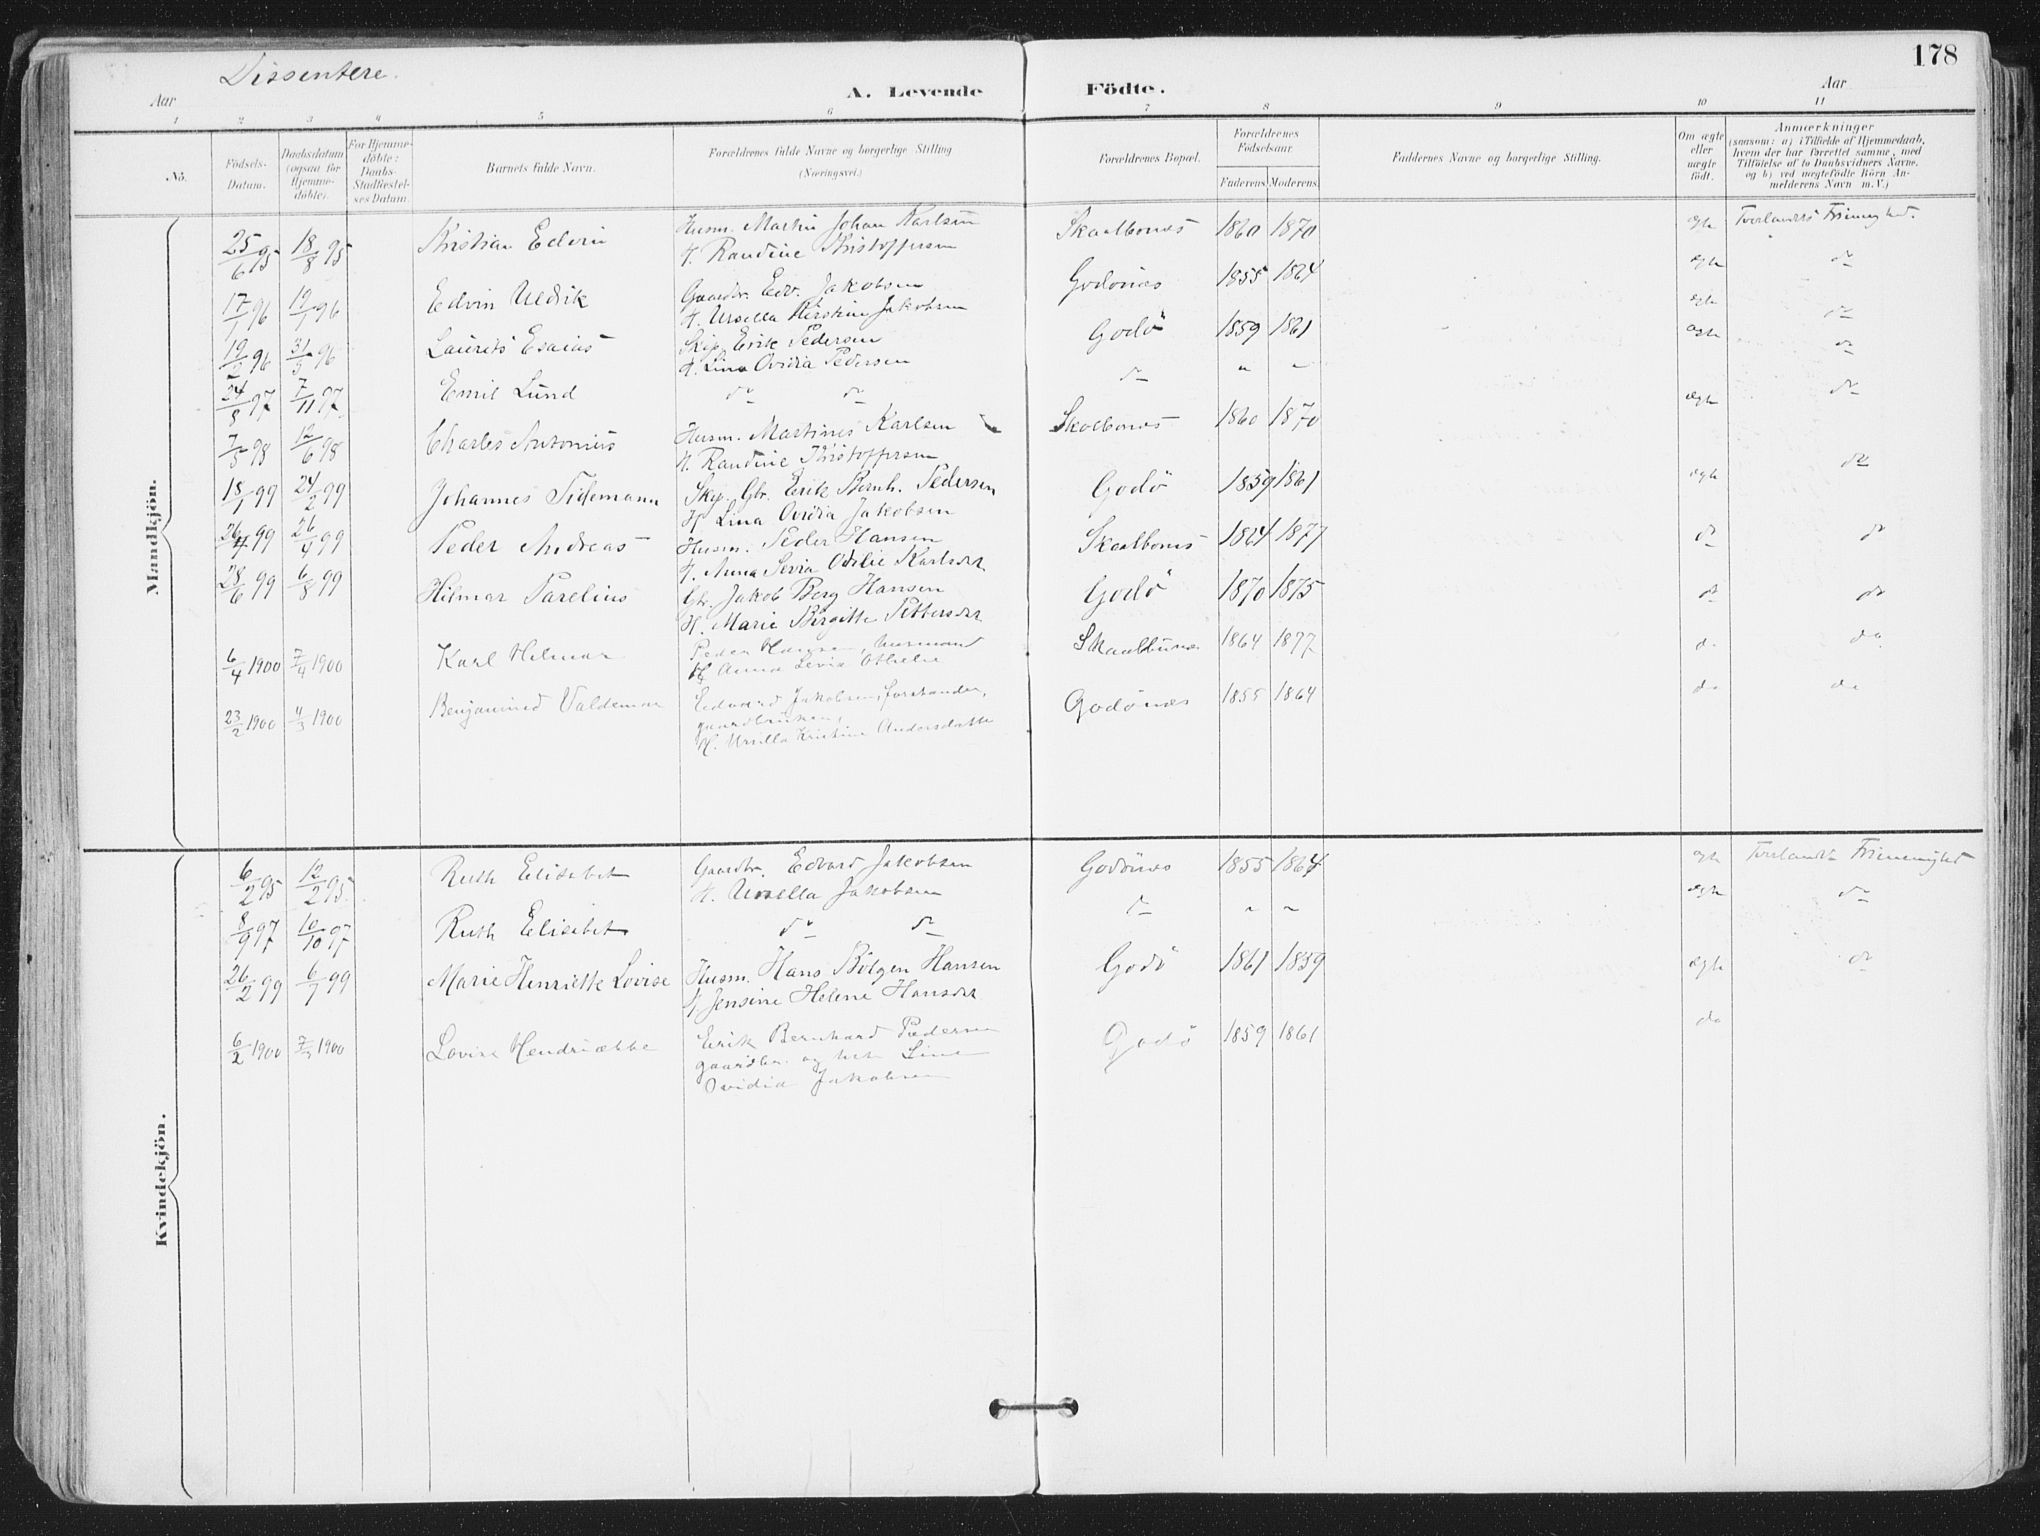 178
Dissentere.
Aar
A. Levende Födte.
Aar
1 2 3 4 5 6 7 8 9 10 11
No.
Födsels-Datum.
Daabsdatum (ogsaa for Hjemme-döbte).
For Hjemme-döbte: Daabs-Stadfæstel-ses Datum.
Barnets fulde Navn.
Forældrenes fulde Navne og borgerlige Stilling
(Næringsvei.)
Forældrenes Bopæl.
Forældrenes Födselsaar.
Faderens. Moderens.
Faddernes Navne og borgerlige Stilling.
Om ægte eller uægte födt.
Anmærkninger
(saasom: a) i Tilfælde af Hjemmedaab, hvem der har forrettet samme, med Tilföielse af to Daabsvidners Navne, og b) ved uægtefödte Börn An-melderens Navn m. V.)
Mandkjön.
25/6 95 18/8 95 Kristian Edvin Husm. Martin Johan Karlsen Skaalbonæs 1860 1870 ægte Tverlandets Frimenighed.
H. Randine Kristoffersen
17/1 96 19/1 96 Edvin Uldrik Gaardbr. Edv. Jakobsen Godönæs 1855 1864 ægte do
H. Ursella Kirstine Jakobsen
19/2 96 31/5 96 Laurits Esaias Skip. Erik Pedersen Godö 1859 1861 ægte do
H. Lina Ovidia Pedersen
24/8 97 7/11 97 Emil Lund do do do " " ægte do
7/5 98 12/6 98 Charles Antonius Husm. Martines Karlsen Skaalbonæs 1860 1870 ægte do
H. Randine Kristoffersen
18/1 99 24/2 99 Johannes Tidemann Skip. Gbr. Erik Bernh. Pedersen Godö 1859 1861 ægte do
H. Lina Ovidia Jakobsen
26/ 99 26/4 99 Peder Andreas Husm. Peder Hansen Skaalbones 1864 1877 do do
H. Anna Sevia Otilie Karlsdat
28/6 99 6/8 99 Hilmar Parelius Gbr. Jakob Berg Hansen Godö 1870 1875 do do
H. Marie Birgitte Pettersdat
6/4 1900 7/4 1900 Karl Hilmar Peder Hansen, husmand Skaalbunes 1864 1877 do do
H. Anna Sevia Othelie
23/2 1900 4/3 1900 Benjamined Valdemar Edvard Jakobsen, forstander, Godönæs 1855 1864 do do
gaardbruker,
H. Ursilla Kristine Andersdatte
Kvindekjön.
6/2 95 12/2 95 Ruth Elisabet Gaardbr. Edvard Jakobsen Godönæs 1855 1864 ægte Tverlandets Frimenighed
H. Ursella Jakobsen
8/9 97 10/10 97 Ruth Elisabet do do do " " ægte do
26/2 99 6/7 99 Marie Henriette Lovise Husm. Hans Bölgen Hansen Godö 1861 1859 ægte do
H. Jensine Helene Hansdat
6/2 1900 7/ 1900 Lovise Hendriætte Erik Bernhard Pedersen Godö 1859 1861 do
gaardbr. og htr Line
Ovidia Jakobsen